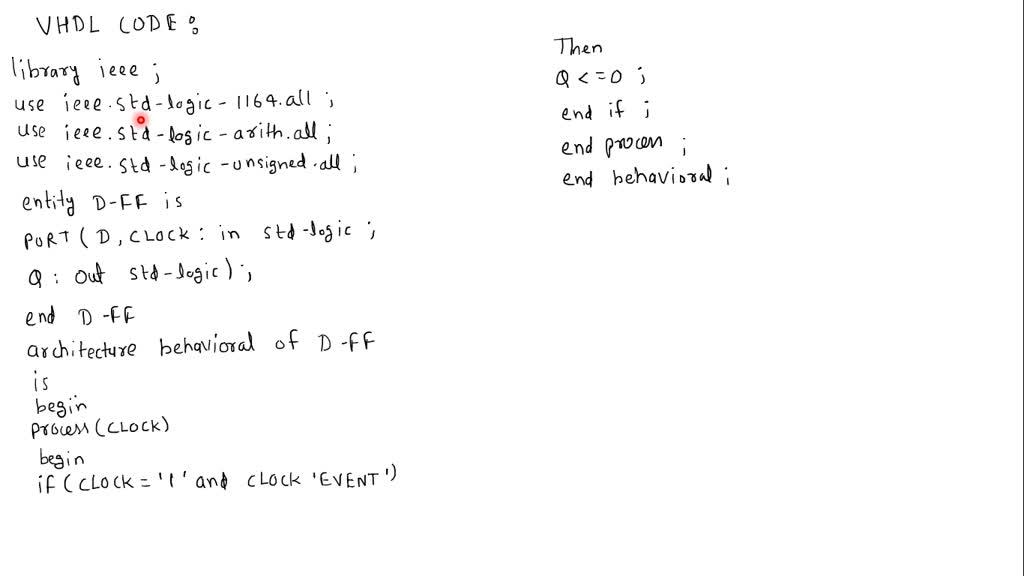 VHDL CODE :
library ieee ;
use ieee.std-logic-1164.all ;
use ieee.std-logic-arith.all ;
use ieee.std-logic-unsigned.all ;
entity D-FF is
PORT ( D , CLOCK : in std-logic ;
Q : out std-logic ) ;
end D-FF
architecture behavioral of D-FF
is
begin
process (CLOCK)
begin
if ( CLOCK = '1' and CLOCK 'EVENT')
Then
Q <= 0 ;
end if ;
end process ;
end behavioral ;